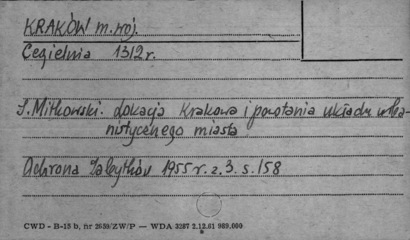 KRAKÓW m. woj.
Cegielnia 1312 r.
J. Mitkowski. Lokacja Krakowa i powstania układu urba-
nistycznego miasta
Ochrona Zabytków 1955 r. z. 3. s. 158
CWD - B-15 b, nr 2659/ZW/P — WDA 3287 2.12.61 969.000